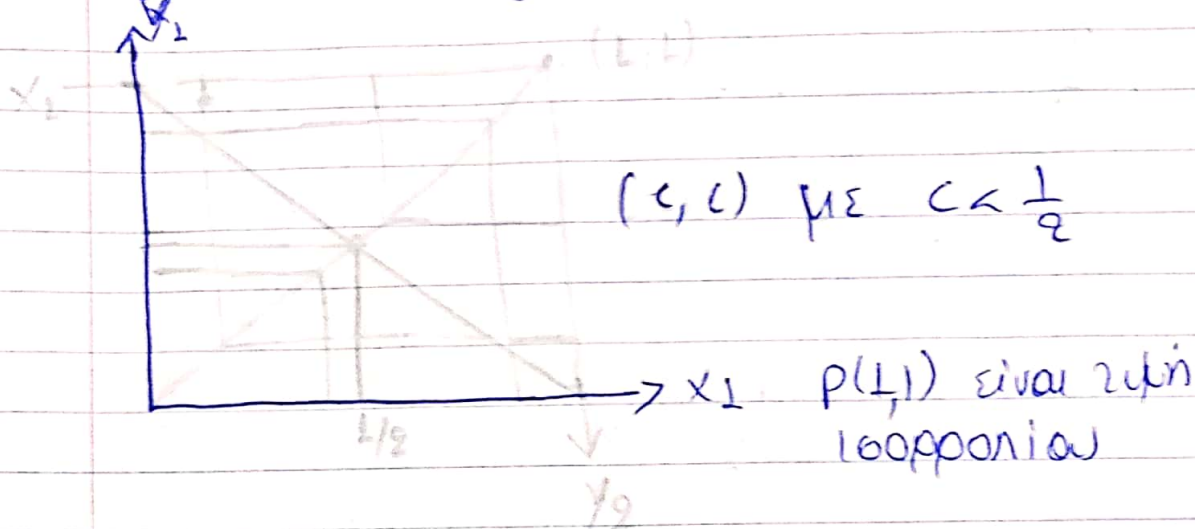 x₂
(1,1)
x₂
(c, c) με c < 1/2
1/2
x₁ p(1,1) είναι τιμή
ισορροπίας
y₂